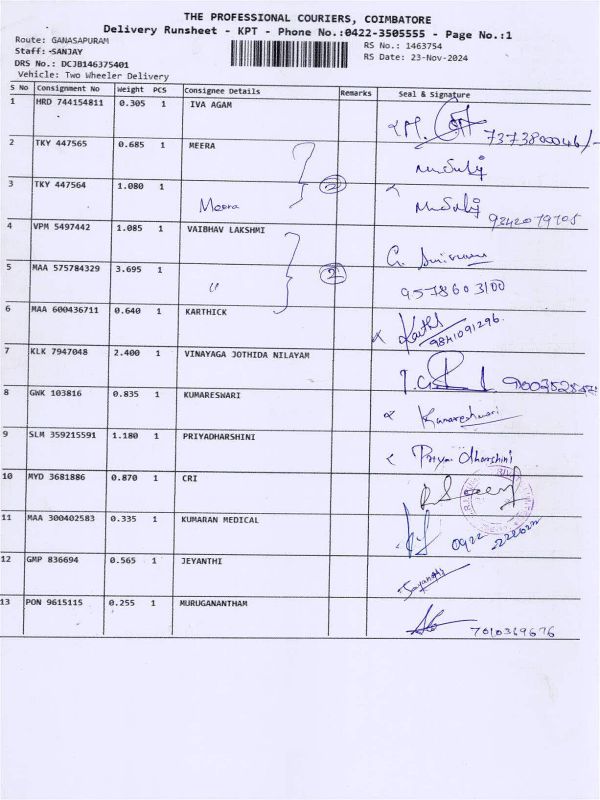 THE PROFESSIONAL COURIERS, COIMBATORE
Delivery Runsheet - KPT - Phone No.:0422-3505555 - Page No.:1
Route: GANASAPURAM
RS No.: 1463754
Staff: -SANJAY
RS Date: 23-Nov-2024
DRS No.: DCJB146375401
Vehicle: Two Wheeler Delivery
S No Consignment No Weight PCS Consignee Details Remarks Seal & Signature
1 HRD 744154811 0.305 1 IVA AGAM
7373800046/-
2 TKY 447565 0.685 1 MEERA
3 TKY 447564 1.080 1
Meera 2 9342079705
4 VPM 5497442 1.085 1 VAIBHAV LAKSHMI
5 MAA 575784329 3.695 1
" 2 9578603100
6 MAA 600436711 0.640 1 KARTHICK
9841091296
7 KLK 7947048 2.400 1 VINAYAGA JOTHIDA NILAYAM
8 GWK 103816 0.835 1 KUMARESWARI
Kumareshwari
9 SLM 359215591 1.180 1 PRIYADHARSHINI
Priya dharshini
10 MYD 3681886 0.870 1 CRI
11 MAA 300402583 0.335 1 KUMARAN MEDICAL
0922
222622
12 GMP 836694 0.565 1 JEYANTHI
13 PON 9615115 0.255 1 MURUGANANTHAM
7010369676